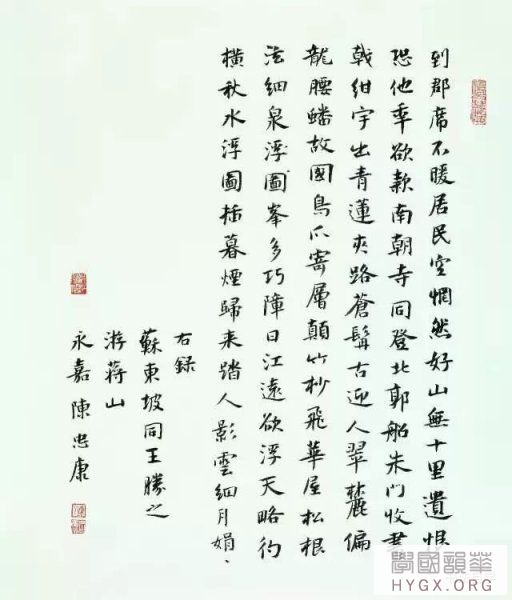 到郡席不暖居民空惘然好山無十里遺恨
恐他秊欲款南朝寺同登北郭船朱門收畫
戟紺宇出青蓮夾路蒼髯古迎人翠麓偏
龍腰蟠故國鳥爪寄層顛竹杪飛華屋松根
泫細泉浮圖峯多巧障日江遠欲浮天略彴
橫秋水浮圖插暮煙歸來踏人影雲細月娟、
右錄
蘇東坡同王勝之
游蔣山
永嘉陳忠康
學國韻華
HYGX.ORG